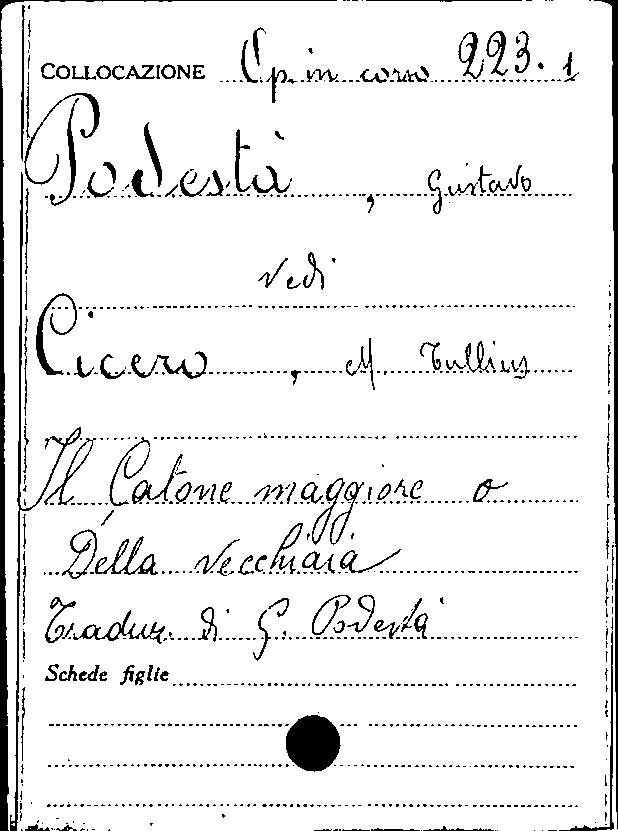 COLLOCAZIONE Op. in corso 223. 1
Podestà, Gustavo
Vedi
Cicero, M. Tullius
Il Catone maggiore o
Della vecchiaia
Tradur. di G. Podestà
Schede figlie